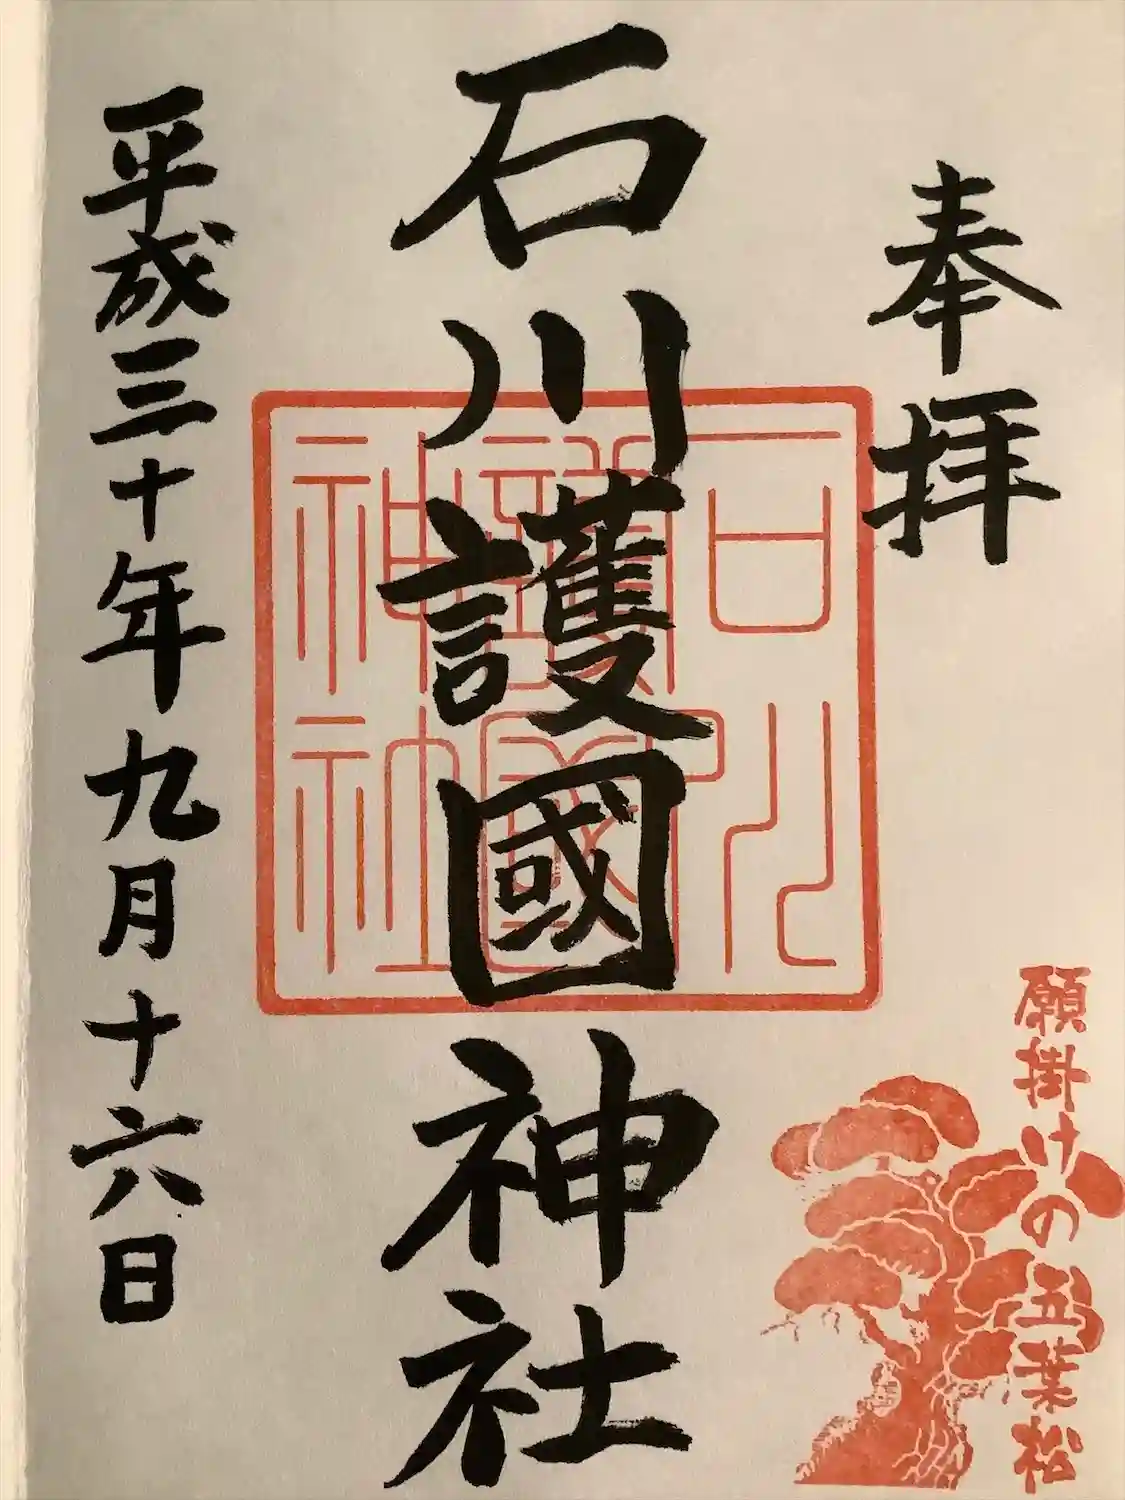 奉拝
石川護國神社
平成三十年九月十六日
石川
護國
神社
願掛けの五葉松